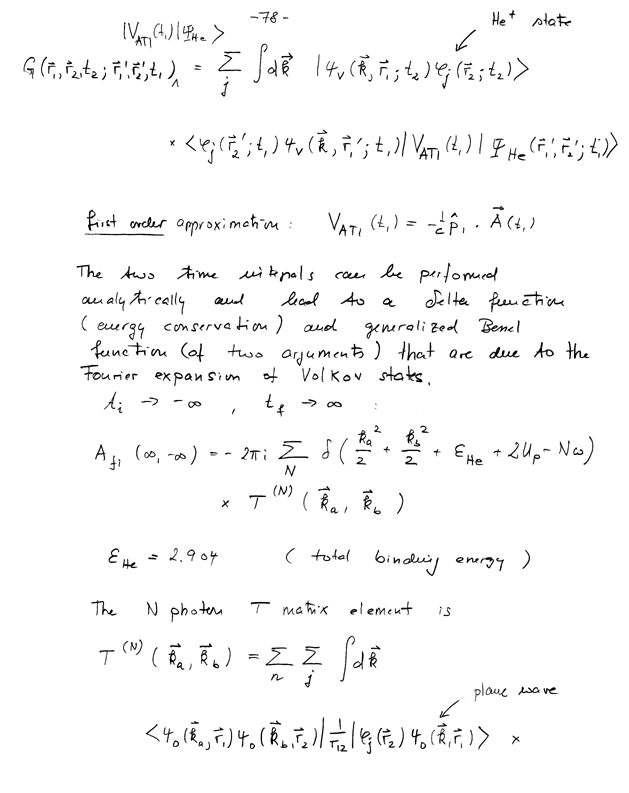 -78-
He⁺ state
|V_ATI(t₁)|Ψ_He>
G(r⃗₁,r⃗₂,t₂; r⃗₁',r⃗₂',t₁)_Λ = Σ_j ∫dk⃗ |ψ_v(k⃗,r⃗₁;t₂) φ_j(r⃗₂;t₂)>
× <φ_j(r⃗₂';t₁) ψ_v(k⃗,r⃗₁';t₁)|V_ATI(t₁)|Ψ_He(r⃗₁',r⃗₂';t₁)>
first order approximation: V_ATI(t₁) = -1/c p̂₁ · A⃗(t₁)
The two time integrals can be performed
analytically and lead to a delta function
(energy conservation) and generalized Bessel
function (of two arguments) that are due to the
Fourier expansion of Volkov states.
t_i → -∞ , t_f → ∞ :
A_fi (∞,-∞) = - 2πi Σ_N δ(k_a²/2 + k_b²/2 + ε_He + 2U_p - Nω)
× T^(N) (k⃗_a, k⃗_b)
ε_He = 2.904 (total binding energy)
The N photon T matrix element is
T^(N) (k⃗_a, k⃗_b) = Σ_n Σ_j ∫dk⃗
plane wave
<ψ₀(k⃗_a,r⃗₁) ψ₀(k⃗_b,r⃗₂)|1/r₁₂|φ_j(r⃗₂) ψ₀(k⃗,r⃗₁)> ×